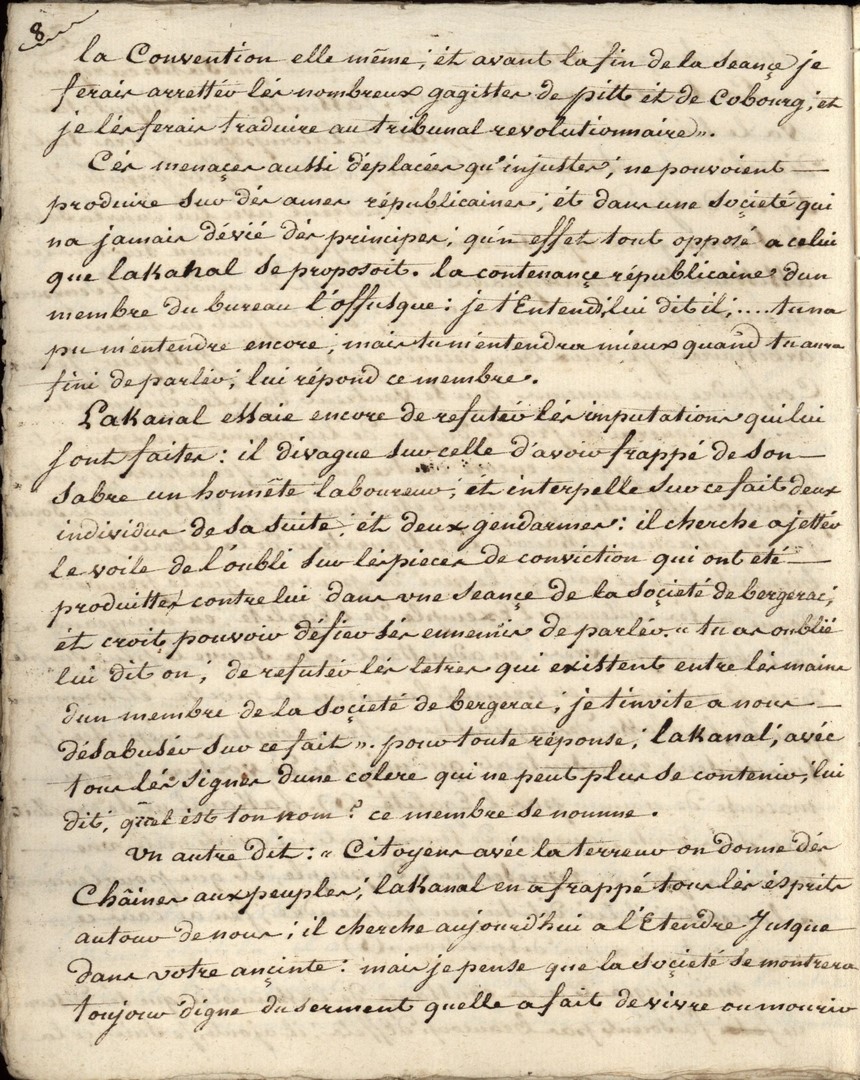 8
la Convention elle même; ét avant la fin de la seançe je
ferais arrettér lés nombreux gagistes de pitt ét de Cobourg; et
je lés ferais traduire au tribunal revolutionnaire».
Cés menaçes aussi déplacées qu'injustes; ne pouvoient —
produire sur dés ames républicaines; ét dans une soçieté qui
na jamais dévié dés principes; qu'n effet tout opposé a celui
que lakanal se proposoit. la contenançe républicaine dun
membre du bureau l'offusque: je t'Entends, lui dit il; .... tu na
pu m'entendre encore, mais tu m'entendra mieux quand tu aura
fini de parlér; lui répond ce membre.
Lakanal essaie encore de refutér lés imputations qui lui
sont faites: il divague sur celle d'avoir frappé de son —
sabre un honnête laboureur; ét interpelle sur ce fait deux
individus de sa suite; ét deux gendarmes: il cherche a jettér
le voile de l'oubli sur lés pieces de conviction qui ont eté —
produittes contre lui dans une seançe de la soçieté de bergerac;
ét croit pouvoir défier sés ennemis de parlér. « tu as oublié
lui dit on; de refutér lés letres qui existent entre lés mains
dun membre de la soçieté de bergerac; je t'invite a nous —
désabusér sur ce fait». pour toute réponse; lakanal; avéc
tous lés signes dune colere qui ne peut plus se contenir; lui
dit, quel ést ton nom? ce membre se nomme.
Un autre dit: « Citoyens avéc la terreur on donne dés
Chaînes aux peuples; lakanal en a frappé tous lés ésprits
autour de nous; il cherche aujourd'hui a l'Etendre Jusque
dans votre ançinte: mais je pense que la soçieté se montrera
toujour digne du serment quelle a fait de vivre ou mourir